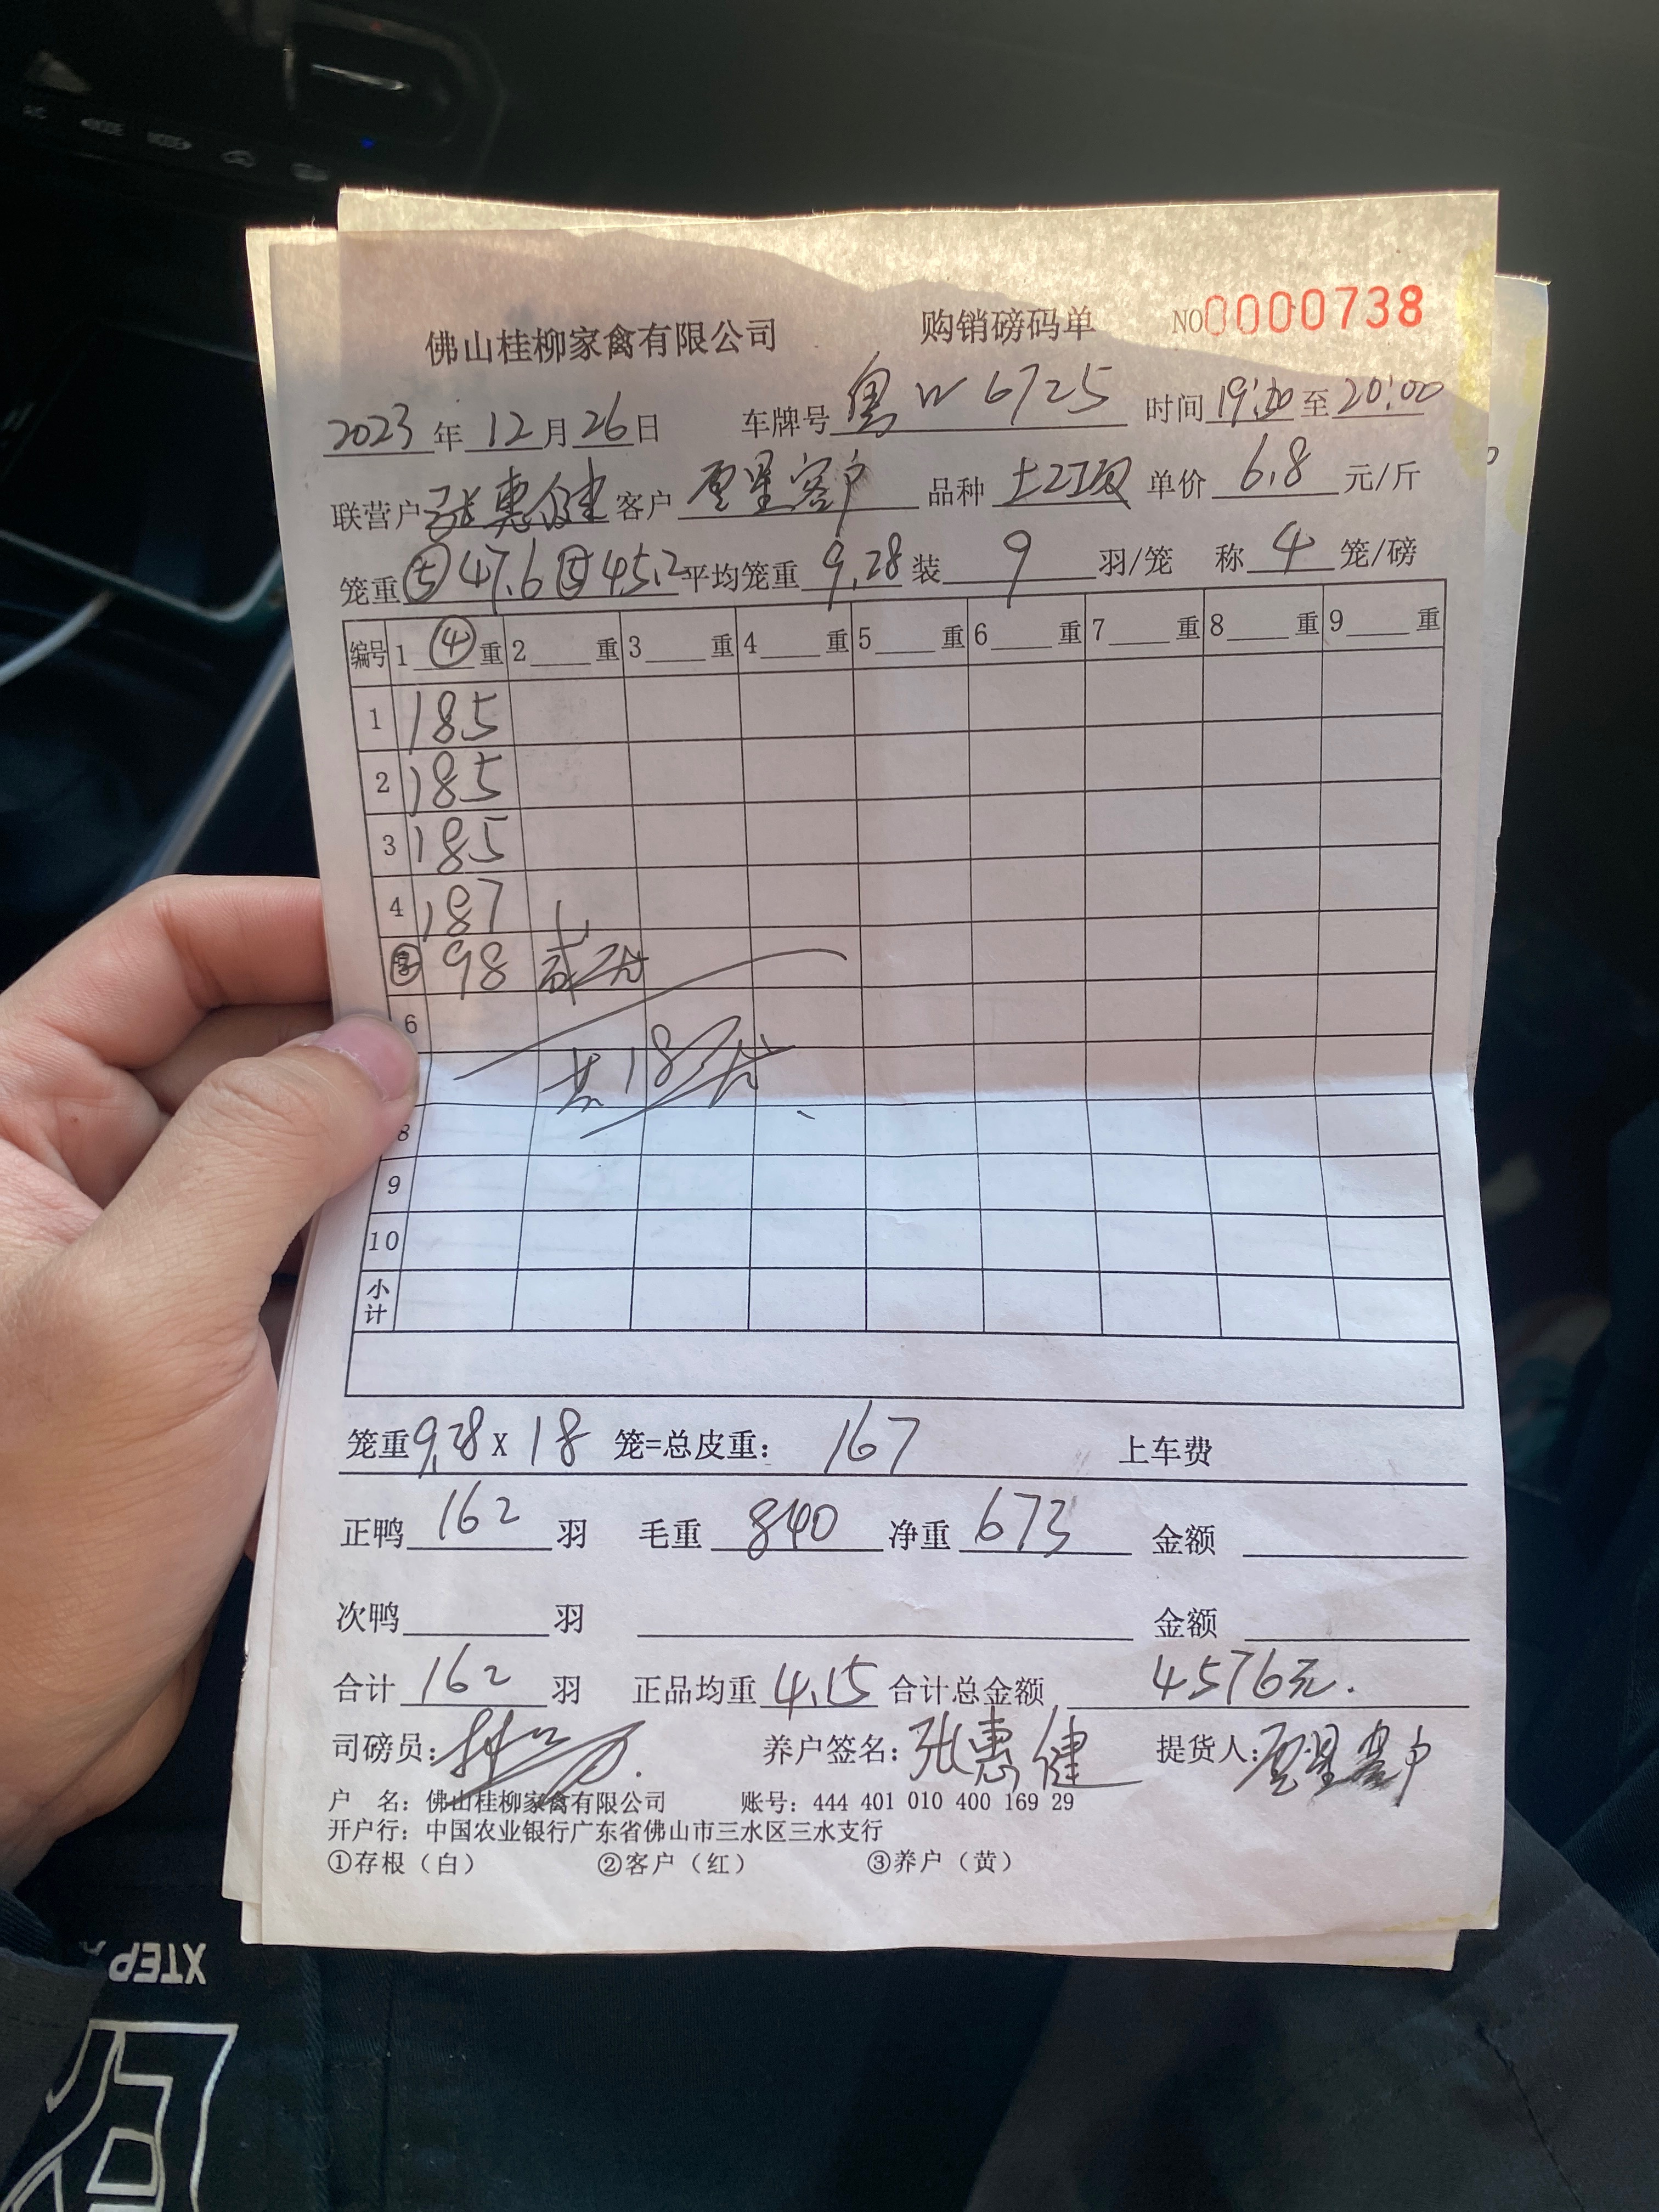 佛山桂柳家禽有限公司 购销磅码单 NO0000738
2023年12月26日 车牌号粤W6725 时间19:30至20:00
联营户张惠健 客户星客户 品种土2项 单价6.8元/斤
笼重⑤47.6⑤45.2平均笼重9.28装9羽/笼 称4笼/磅
编号 1④重 2重 3重 4重 5重 6重 7重 8重 9重
1 185
2 185
3 185
4 187
98
6
共18
8
9
10
小计
笼重9.28X18笼=总皮重:167 上车费
正鸭162羽 毛重840净重673 金额
次鸭 羽 金额
合计162羽 正品均重4.15合计总金额4576元.
司磅员: 养户签名:张惠健 提货人:星客户
户 名:佛山桂柳家禽有限公司 账号:444 401 010 400 169 29
开户行:中国农业银行广东省佛山市三水区三水支行
①存根(白) ②客户(红) ③养户(黄)
XTEP